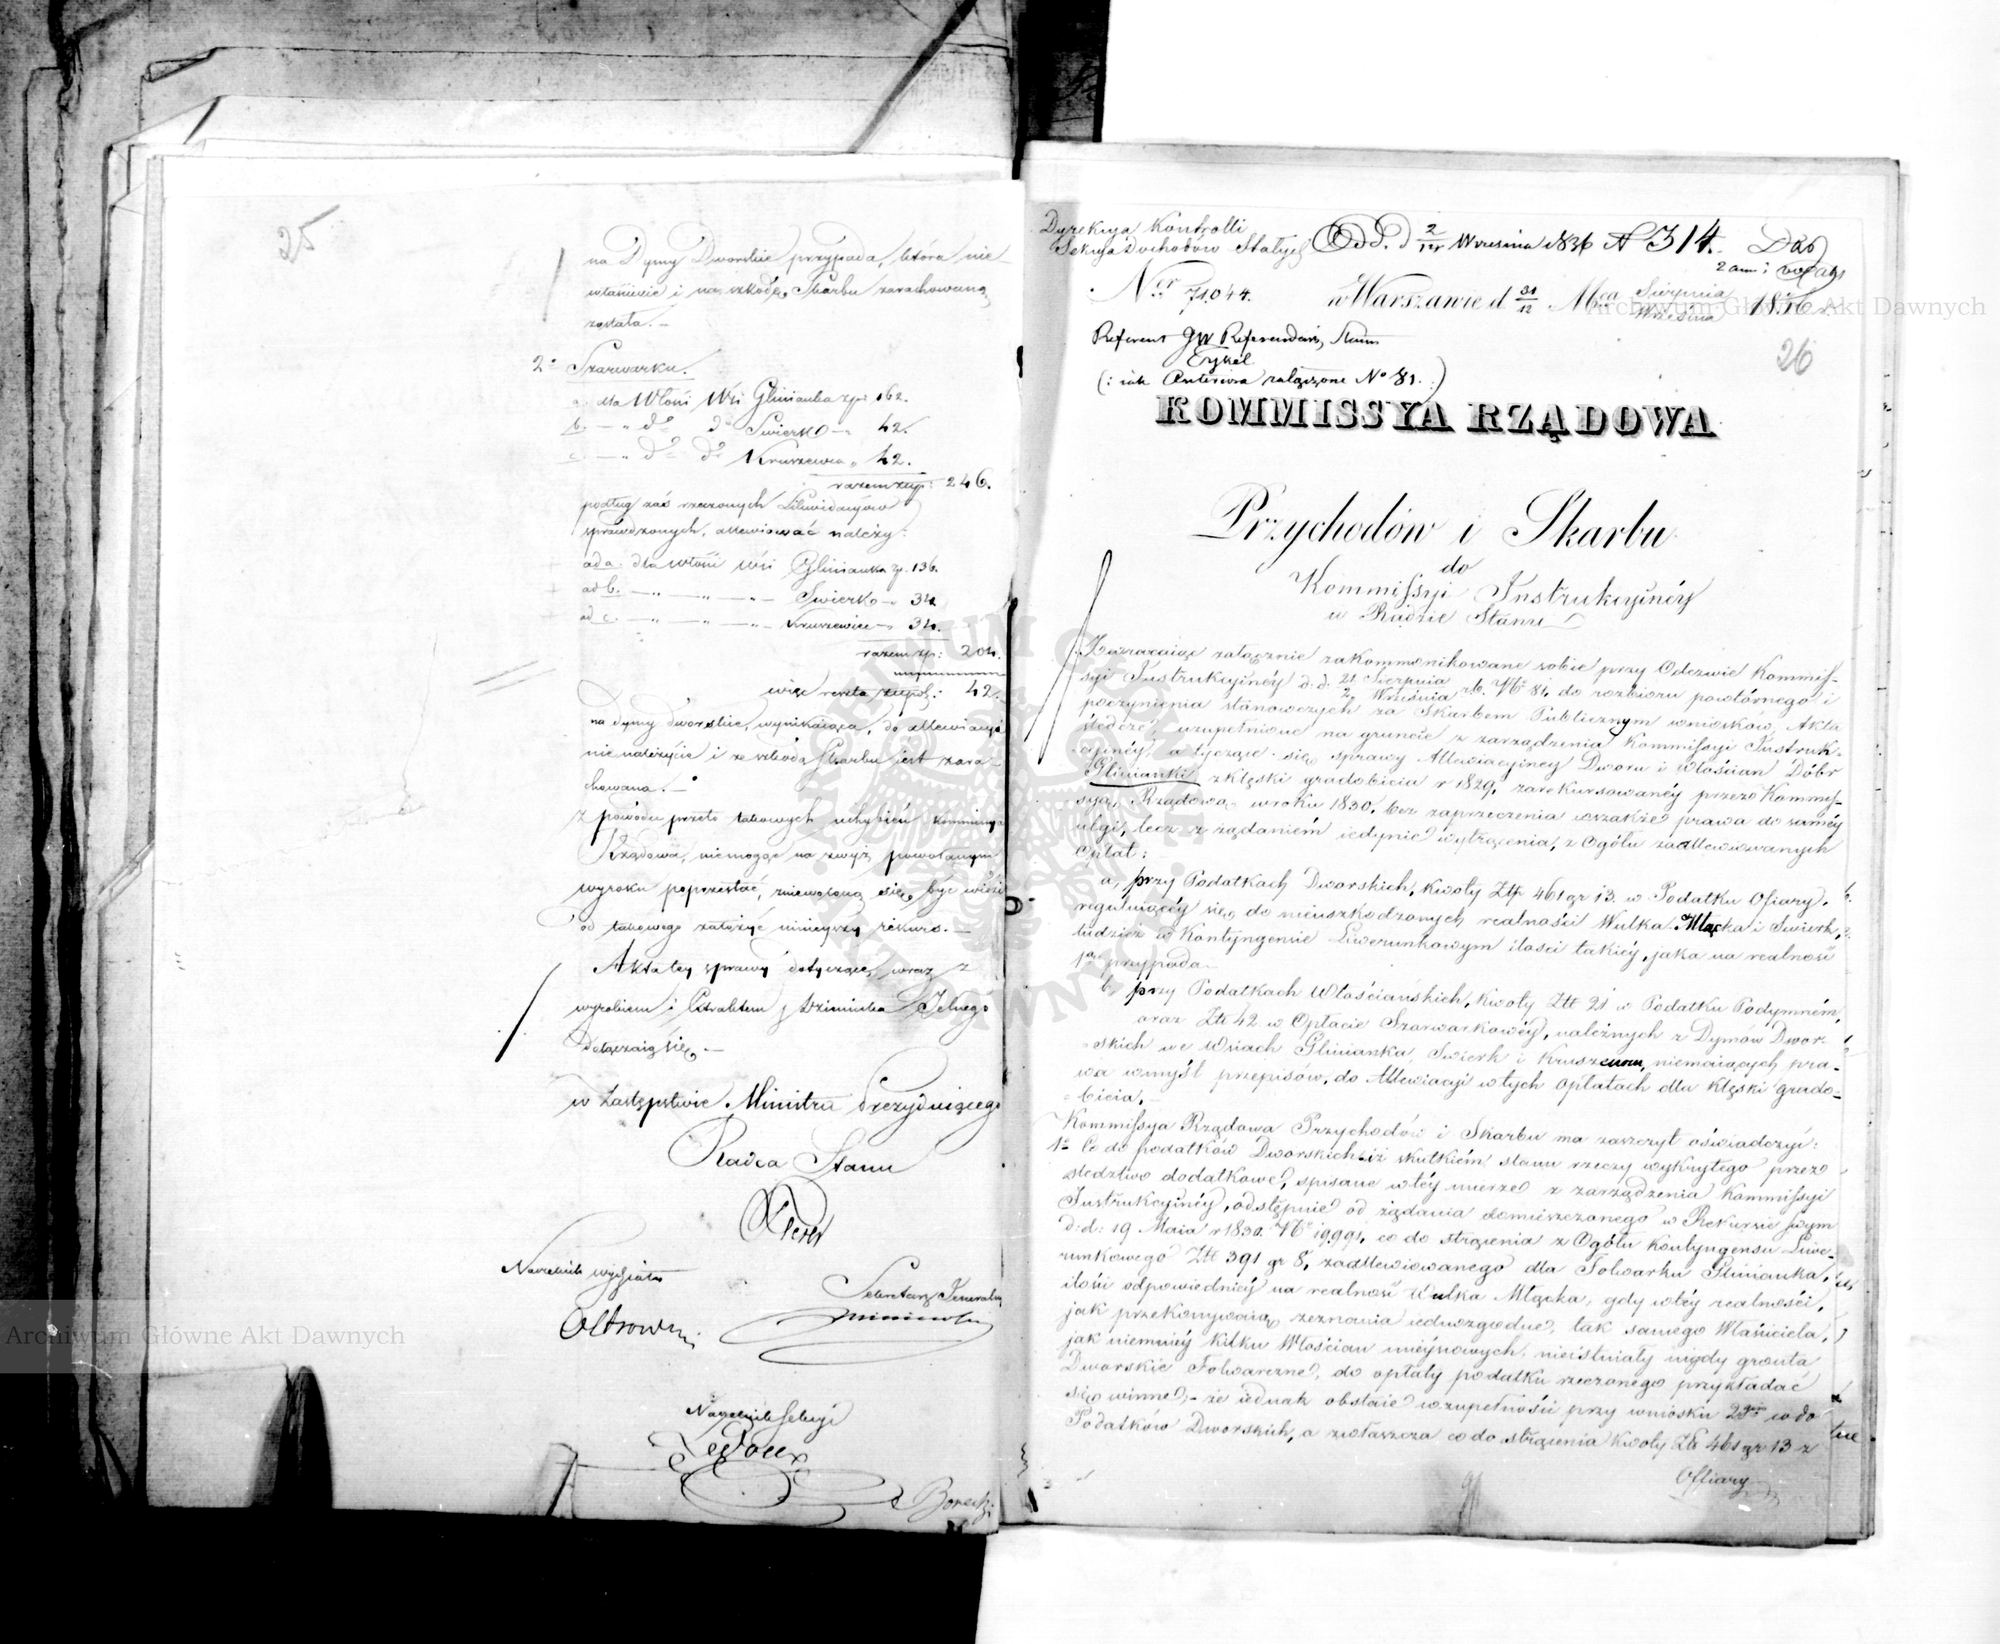 25
na Dymy Dworskie przypada, która nie-
właściwie i na szkodę Skarbu zarachowaną
została. —
2° Szarwarku.
a. dla Włości Wsi Glinianka zp: 162.
b. — „ d° d° Swierk — „ 42.
c. — „ d° d° Kruszewiec „ 42.
razem złp: 246.
podług zaś rzeczonych Likwidacyów
sprawdzonych, allewiować należy:
ad a. dla włości wsi Glinianka zp. 136.
ad b. — „ — „ — „ — Swierk — „ 34.
ad c. — „ — „ — „ — Kruszewiec — „ 34.
razem zp: 204.
więc reszta złpol: 42.
na dymy dworskie, wynikaiąca, do allewiacyi
nie należycie i ze szkodą Skarbu iest zara-
chowana. —
Z powodu przeto takowych uchybień Kommissya
Rządowa, niemogąc na zwyż powołanym
wyroku poprzestać, zniewoloną się być widzi
od takowego założyć ninieyszy rekurs. —
Akta tey sprawy dotyczące, wraz z
wyrobiem i Extraktem z Dziennika Jelnego
dołączaią się. —
w Zastępstwie Ministra Prezyduiącego
Radca Stanu
Naczelnik wydziału
Sekretarz Jeneralny
Naczelnik Sekcyi
Borecki
Dyrekcya Kontrolli
Sekcya Dochodów Stałych
Odd. d 2/14 Września 1836 № 314.
Ner 71044.
w Warszawie d 31/12 Mca Sierpnia/Września 1836 r.
26
Referent JW Referendarz Stanu
(: iak Anteriora załączone No 81. :)
KOMMISSYA RZĄDOWA
Przychodów i Skarbu
do
Kommissyi Instrukcyinéy
w Radzie Stanu
Zwracaiąc załącznie zakommunikowane sobie przy Odezwie Kommis-
syi Instrukcyinéy d. d. 21 Sierpnia/2 Września r. b. N° 81, do rozbioru powtórnego i
poczynienia stanowczych za Skarbem Publicznym wniosków, Akta
śledcze, uzupełnione na gruncie z zarządzenia Kommissyi Instruk-
cyinéy, a tyczące się sprawy Allewiacyinéy Dworu i Włościan Dóbr
Glinianki z klęski gradobicia r 1829, zarekursowanéy przez Kommis-
syą Rządową w roku 1830, bez zaprzeczenia wszakże prawa do saméy
ulgi, lecz z żądaniem iedynie wytrącenia, z Ogółu zaallewiowanych
Opłat:
a, przy Podatkach Dworskich, kwoty Złp 461 gr 13. w Podatku Ofiary,
reguluiącéy się do nieuszkodzonych realności Wulka Mlącka i Swierk,
tudzież w Kontyngensie Liwerunkowym ilości takiéy, jaka na realność
1ą przypada. —
b, przy Podatkach Włościańskich, kwoty Złt 21 w Podatku Podymném,
oraz Złt 42 w Opłacie Szarwarkowéy, należnych z Dymów Dwor-
skich we Wsiach Glinianka, Swierk i Kruszewiec, niemaiących pra-
wa w myśl przepisów, do Allewiacyi w tych opłatach dla klęski grado-
bicia. —
Kommissya Rządowa Przychodów i Skarbu ma zaszczyt oświadczyć:
1° Co do podatków Dworskich iż skutkiem stanu rzeczy wykrytego przez
śledztwo dodatkowe, spisane w téy mierze z zarządzenia Kommissyi
Instrukcyinéy, odstępuie od żądania domieszczonego w Rekursie swym
d: d: 19 Maia r 1830. N° 19,991, co do strącenia z Ogółu Kontyngensu Liwe-
runkowego Złt 391 gr 8, zaallewiowanego dla Folwarku Glinianka,
ilości odpowiedniéy na realność Wulka Mlącka, gdy w téy realności,
jak przekonywaią zeznania iednozgodne, tak samego Właściciela,
jak niemniéy kilku Włościan mieyscowych, nieistniały nigdy grunta
Dworskie Folwarczne, do opłaty podatku rzeczonego przykładać
się winne, — że iednak obstaie w zupełności przy wniosku 2gim w do
Podatków Dworskich, a zwłaszcza co do strącenia kwoty Złt 461 gr 13 z
Offiary
Archiwum Główne Akt Dawnych
Archiwum Główne Akt Dawnych